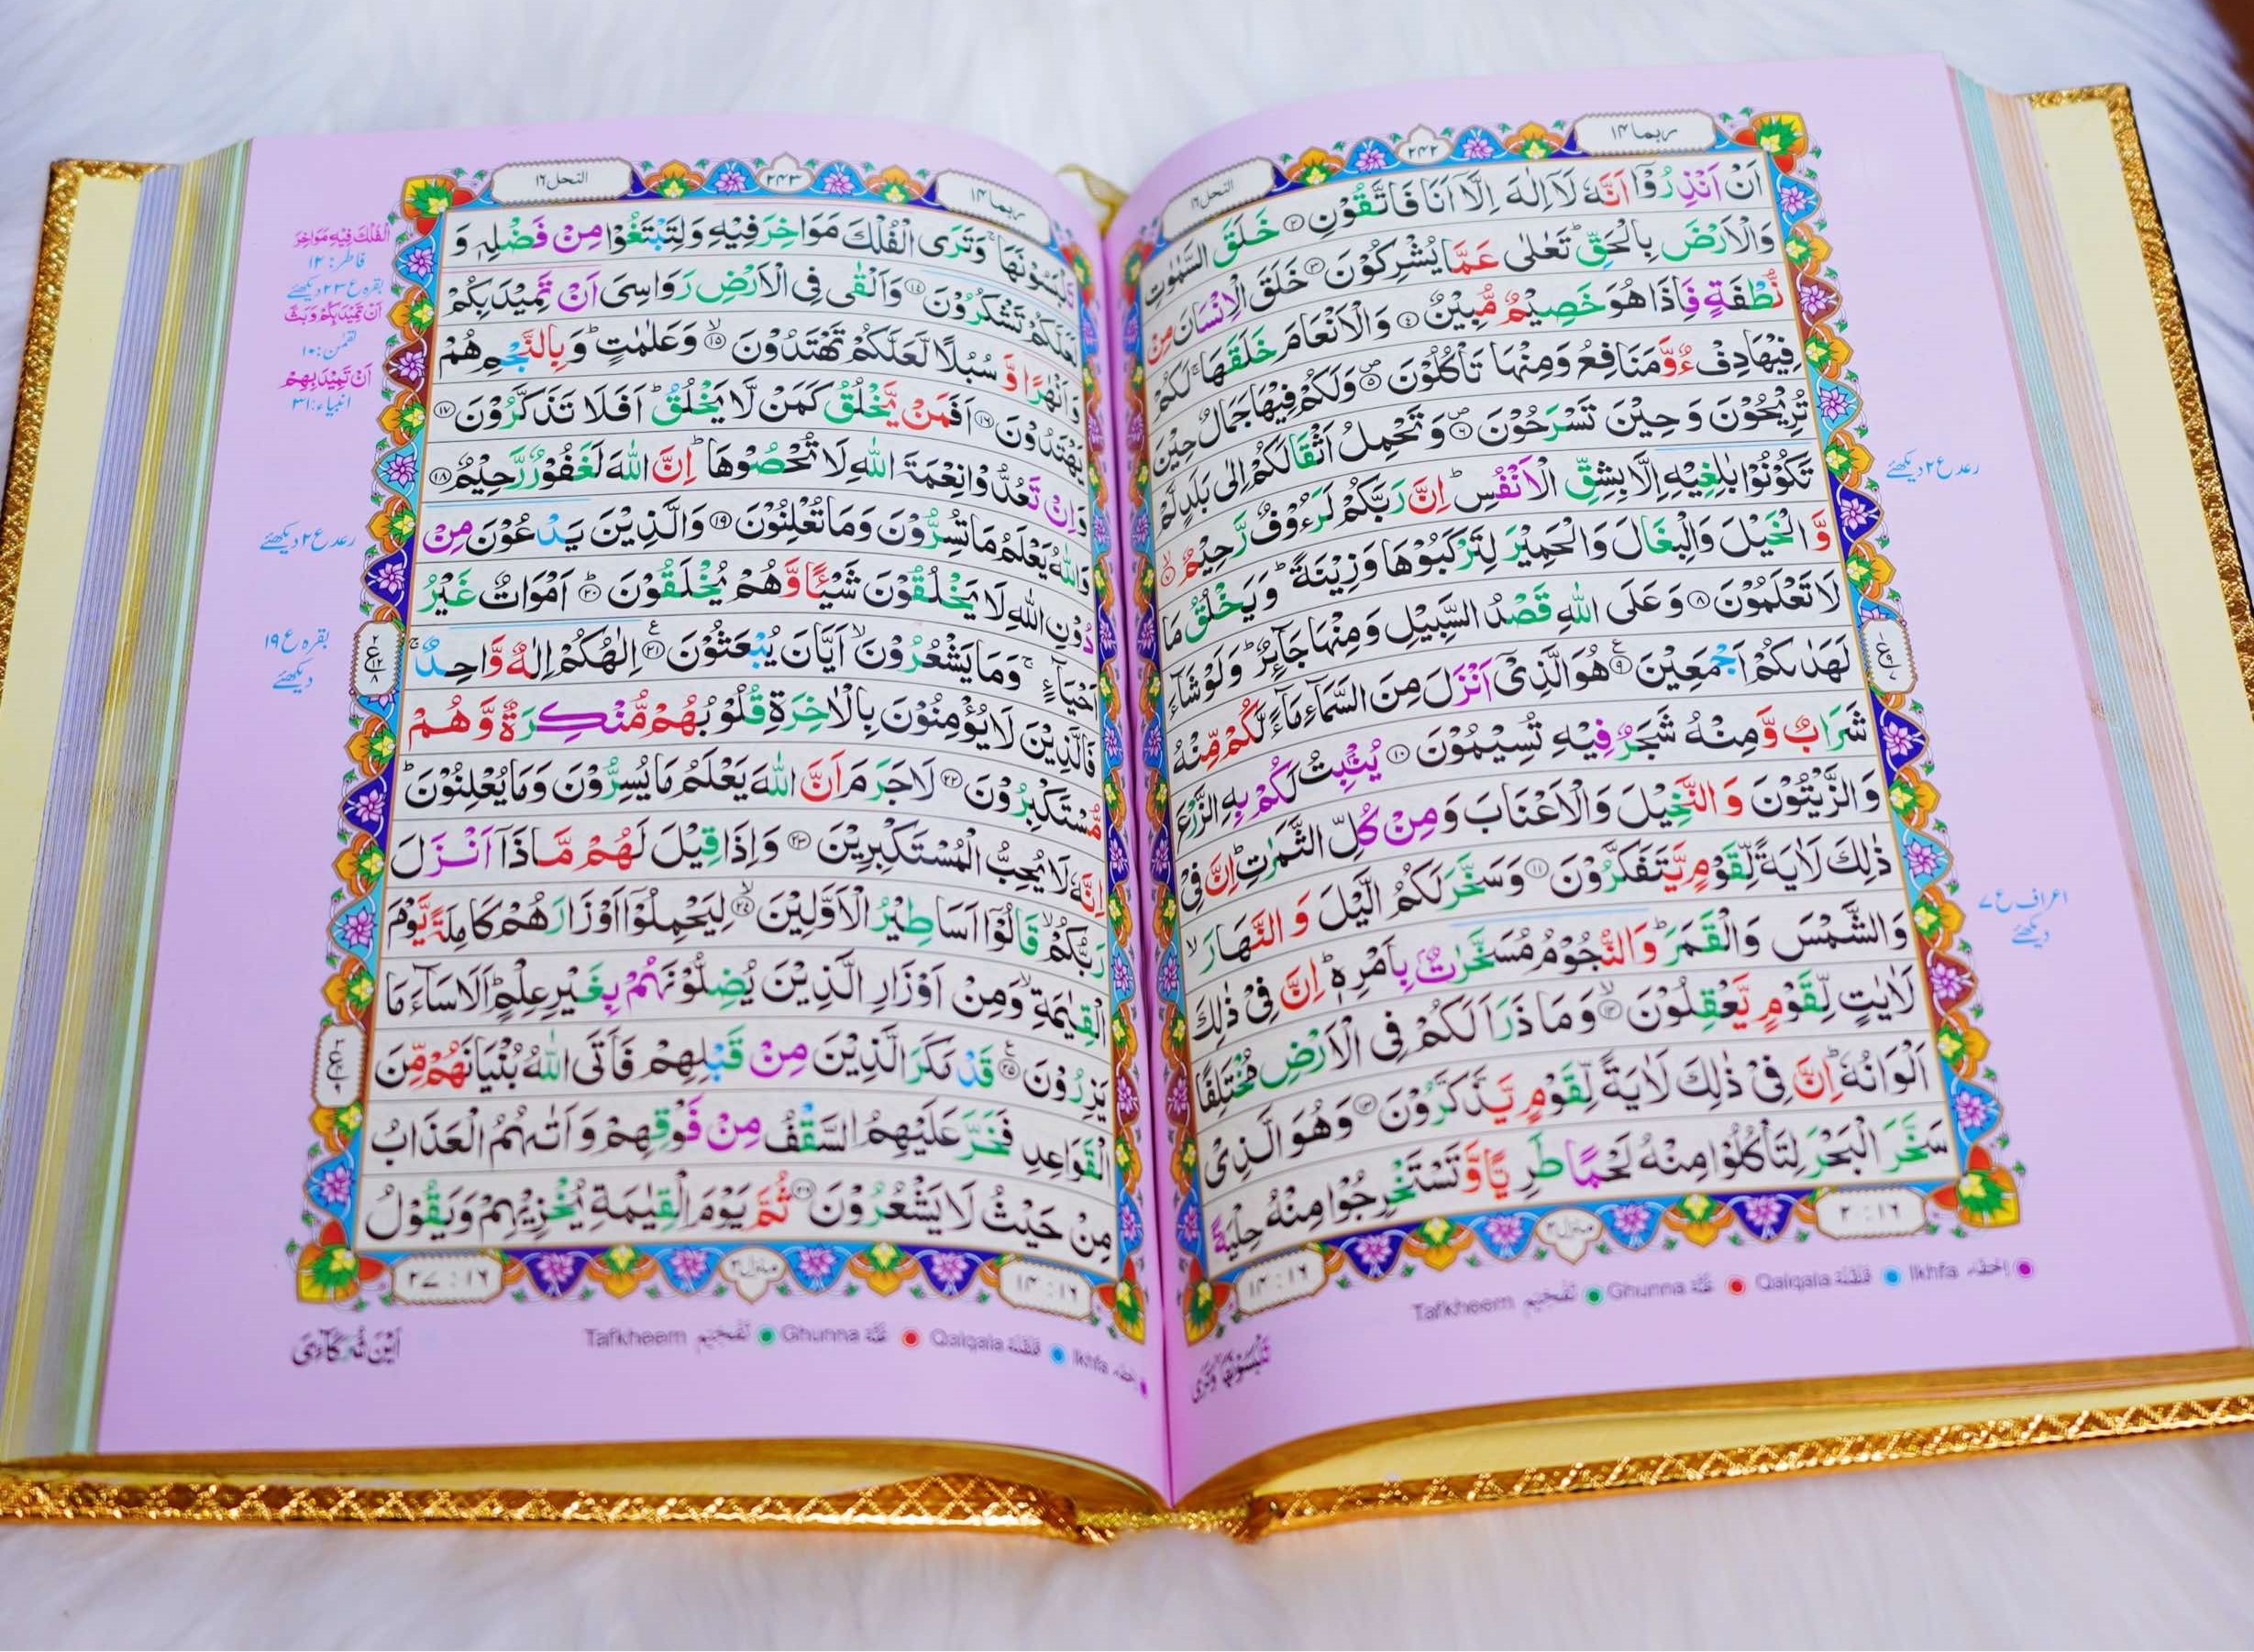 ربما ۱۴
۲۴۲
النحل ۱۶
اَنْ اَنْذِرُوْۤا اَنَّهٗ لَاۤ اِلٰهَ اِلَّاۤ اَنَا فَاتَّقُوْنِ ۝۲ خَلَقَ السَّمٰوٰتِ
وَالْاَرْضَ بِالْحَقِّ ؕ تَعٰلٰى عَمَّا يُشْرِكُوْنَ ۝۳ خَلَقَ الْاِنْسَانَ مِنْ
نُّطْفَةٍ فَاِذَا هُوَ خَصِيْمٌ مُّبِيْنٌ ۝۴ وَالْاَنْعَامَ خَلَقَهَا ۚ لَكُمْ
فِيْهَا دِفْءٌ وَّمَنَافِعُ وَمِنْهَا تَاْكُلُوْنَ ۝۵ وَلَكُمْ فِيْهَا جَمَالٌ حِيْنَ
تُرِيْحُوْنَ وَحِيْنَ تَسْرَحُوْنَ ۝۶ وَتَحْمِلُ اَثْقَالَكُمْ اِلٰى بَلَدٍ لَّمْ
تَكُوْنُوْا بٰلِغِيْهِ اِلَّا بِشِقِّ الْاَنْفُسِ ؕ اِنَّ رَبَّكُمْ لَرَءُوْفٌ رَّحِيْمٌ ۝۷
وَّالْخَيْلَ وَالْبِغَالَ وَالْحَمِيْرَ لِتَرْكَبُوْهَا وَزِيْنَةً ؕ وَيَخْلُقُ مَا
لَا تَعْلَمُوْنَ ۝۸ وَعَلَى اللّٰهِ قَصْدُ السَّبِيْلِ وَمِنْهَا جَآئِرٌ ؕ وَلَوْ شَآءَ
لَهَدٰىكُمْ اَجْمَعِيْنَ ۝۹ هُوَ الَّذِيْۤ اَنْزَلَ مِنَ السَّمَآءِ مَآءً لَّكُمْ مِّنْهُ
شَرَابٌ وَّمِنْهُ شَجَرٌ فِيْهِ تُسِيْمُوْنَ ۝۱۰ يُنْۢبِتُ لَكُمْ بِهِ الزَّرْعَ
وَالزَّيْتُوْنَ وَالنَّخِيْلَ وَالْاَعْنَابَ وَمِنْ كُلِّ الثَّمَرٰتِ ؕ اِنَّ فِيْ
ذٰلِكَ لَاٰيَةً لِّقَوْمٍ يَّتَفَكَّرُوْنَ ۝۱۱ وَسَخَّرَ لَكُمُ الَّيْلَ وَالنَّهَارَ ۙ
وَالشَّمْسَ وَالْقَمَرَ ؕ وَالنُّجُوْمُ مُسَخَّرٰتٌۢ بِاَمْرِهٖ ؕ اِنَّ فِيْ ذٰلِكَ
لَاٰيٰتٍ لِّقَوْمٍ يَّعْقِلُوْنَ ۝۱۲ وَمَا ذَرَاَ لَكُمْ فِى الْاَرْضِ مُخْتَلِفًا
اَلْوَانُهٗ ؕ اِنَّ فِيْ ذٰلِكَ لَاٰيَةً لِّقَوْمٍ يَّذَّكَّرُوْنَ ۝۱۳ وَهُوَ الَّذِيْ
سَخَّرَ الْبَحْرَ لِتَاْكُلُوْا مِنْهُ لَحْمًا طَرِيًّا وَّتَسْتَخْرِجُوْا مِنْهُ حِلْيَةً
رعد ع ۲ دیکھئے
اعراف ع ۷
دیکھئے
۲ : ۱۶
منزل ۳
۱۴ : ۱۶
Ikhfa اِخفَاء Qalqala قَلْقَلَة Ghunna غُنَّة Tafkheem تَفْخِيْم
تَلْبَسُوْنَهَا وَتَرَى
ربما ۱۴
۲۴۳
النحل ۱۶
تَلْبَسُوْنَهَا ۚ وَتَرَى الْفُلْكَ مَوَاخِرَ فِيْهِ وَلِتَبْتَغُوْا مِنْ فَضْلِهٖ وَ
لَعَلَّكُمْ تَشْكُرُوْنَ ۝۱۴ وَاَلْقٰى فِى الْاَرْضِ رَوَاسِىَ اَنْ تَمِيْدَ بِكُمْ
وَاَنْهٰرًا وَّ سُبُلًا لَّعَلَّكُمْ تَهْتَدُوْنَ ۝۱۵ وَعَلٰمٰتٍ ؕ وَبِالنَّجْمِ هُمْ
يَهْتَدُوْنَ ۝۱۶ اَفَمَنْ يَّخْلُقُ كَمَنْ لَّا يَخْلُقُ ؕ اَفَلَا تَذَكَّرُوْنَ ۝۱۷
وَاِنْ تَعُدُّوْا نِعْمَةَ اللّٰهِ لَا تُحْصُوْهَا ؕ اِنَّ اللّٰهَ لَغَفُوْرٌ رَّحِيْمٌ ۝۱۸
وَاللّٰهُ يَعْلَمُ مَا تُسِرُّوْنَ وَمَا تُعْلِنُوْنَ ۝۱۹ وَالَّذِيْنَ يَدْعُوْنَ مِنْ
دُوْنِ اللّٰهِ لَا يَخْلُقُوْنَ شَيْـًٔا وَّهُمْ يُخْلَقُوْنَ ۝۲۰ اَمْوَاتٌ غَيْرُ
اَحْيَآءٍ ۚ وَمَا يَشْعُرُوْنَ ۙ اَيَّانَ يُبْعَثُوْنَ ۝۲۱ اِلٰهُكُمْ اِلٰهٌ وَّاحِدٌ ۚ
فَالَّذِيْنَ لَا يُؤْمِنُوْنَ بِالْاٰخِرَةِ قُلُوْبُهُمْ مُّنْكِرَةٌ وَّهُمْ
مُّسْتَكْبِرُوْنَ ۝۲۲ لَا جَرَمَ اَنَّ اللّٰهَ يَعْلَمُ مَا يُسِرُّوْنَ وَمَا يُعْلِنُوْنَ ؕ
اِنَّهٗ لَا يُحِبُّ الْمُسْتَكْبِرِيْنَ ۝۲۳ وَاِذَا قِيْلَ لَهُمْ مَّاذَاۤ اَنْزَلَ
رَبُّكُمْ ۙ قَالُوْۤا اَسَاطِيْرُ الْاَوَّلِيْنَ ۝۲۴ لِيَحْمِلُوْۤا اَوْزَارَهُمْ كَامِلَةً يَّوْمَ
الْقِيٰمَةِ ۙ وَمِنْ اَوْزَارِ الَّذِيْنَ يُضِلُّوْنَهُمْ بِغَيْرِ عِلْمٍ ؕ اَلَا سَآءَ مَا
يَزِرُوْنَ ۝۲۵ قَدْ مَكَرَ الَّذِيْنَ مِنْ قَبْلِهِمْ فَاَتَى اللّٰهُ بُنْيَانَهُمْ مِّنَ
الْقَوَاعِدِ فَخَرَّ عَلَيْهِمُ السَّقْفُ مِنْ فَوْقِهِمْ وَاَتٰىهُمُ الْعَذَابُ
مِنْ حَيْثُ لَا يَشْعُرُوْنَ ۝۲۶ ثُمَّ يَوْمَ الْقِيٰمَةِ يُخْزِيْهِمْ وَيَقُوْلُ
الْفُلْكَ فِيْهِ مَوَاخِرَ
فاطر: ۱۲
بقره ع ۲۳ دیکھئے
اَنْ تَمِيْدَ بِكُمْ وَبَثَّ
لقمٰن: ۱۰
اَنْ تَمِيْدَ بِهِمْ
انبیاء: ۳۱
رعد ع ۲ دیکھئے
بقره ع ۱۹
دیکھئے
۱۴ : ۱۶
منزل ۳
۲۷ : ۱۶
Ikhfa اِخفَاء Qalqala قَلْقَلَة Ghunna غُنَّة Tafkheem تَفْخِيْم
اَيْنَ شُرَكَآءِىَ